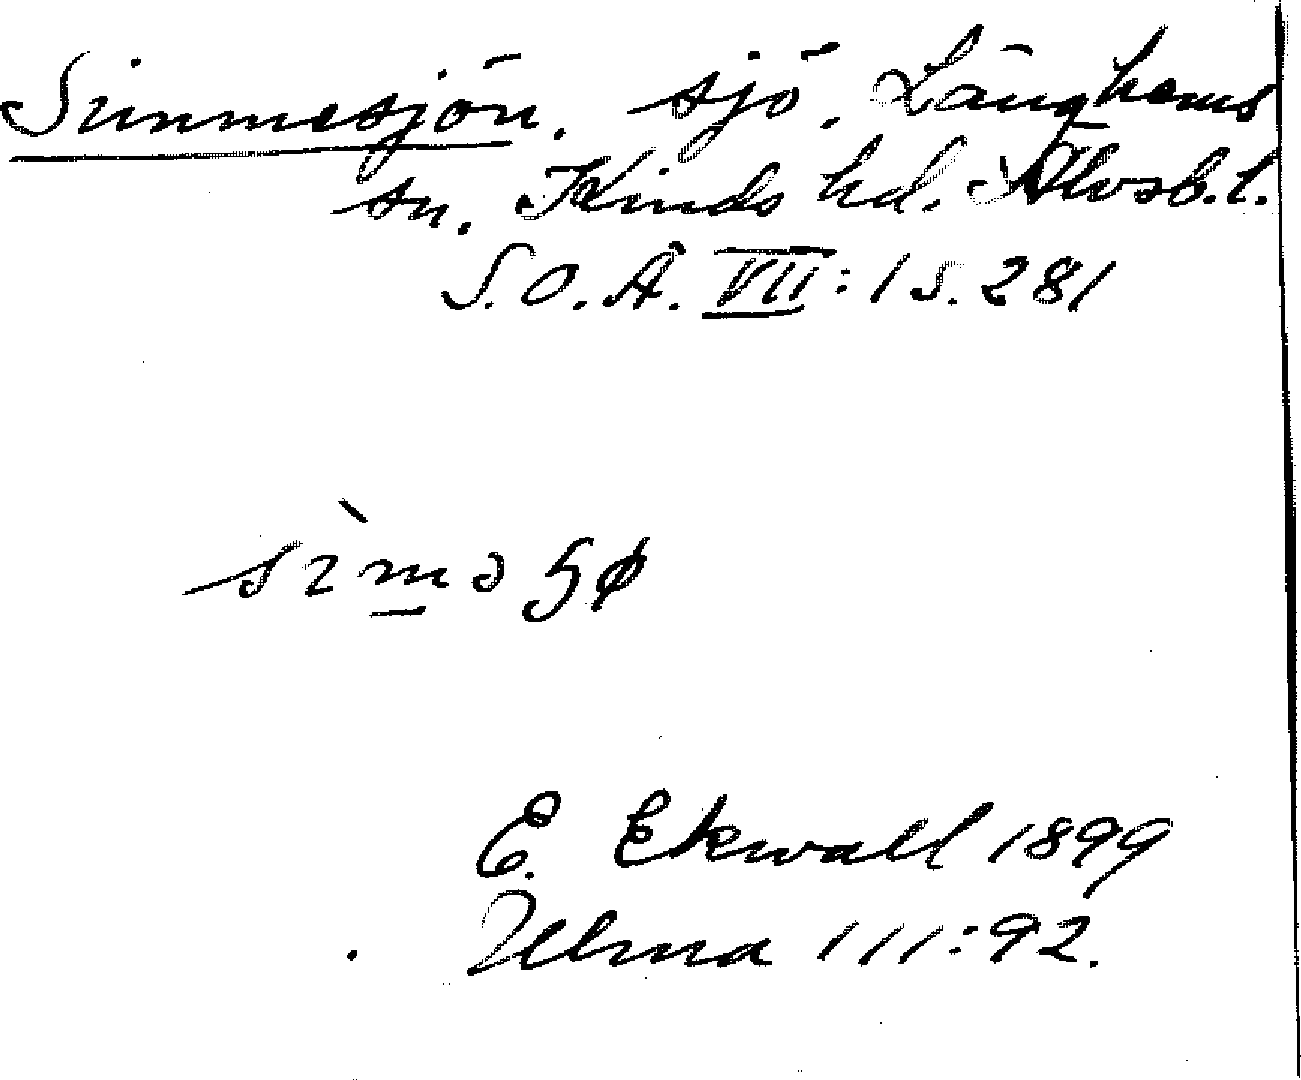 Simmesjön. sjö. Länghems
sn. Kinds hd. Älvsb. l.
S.O.Ä. VII:1 s. 281
E. Ekwall 1899
Ulma 111:92.